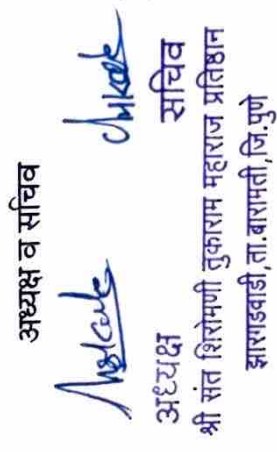 अध्यक्ष व सचिव
अध्यक्ष सचिव
श्री संत शिरोमणी तुकाराम महाराज प्रतिष्ठान
झारगडवाडी, ता.बारामती, जि.पुणे